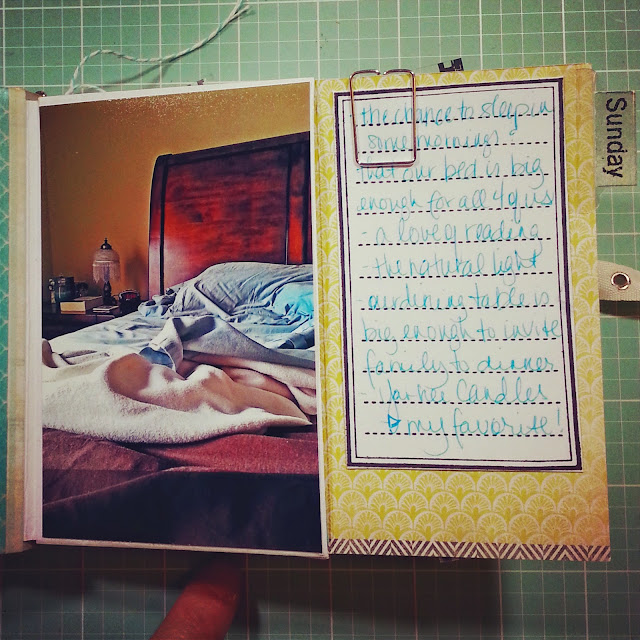 - the chance to sleep in
some mornings
- that our bed is big
enough for all 4 of us
- a love of reading
- the natural light
- our dining table is
big enough to invite
family to dinner
- Yankee Candles
my favorite!
Sunday